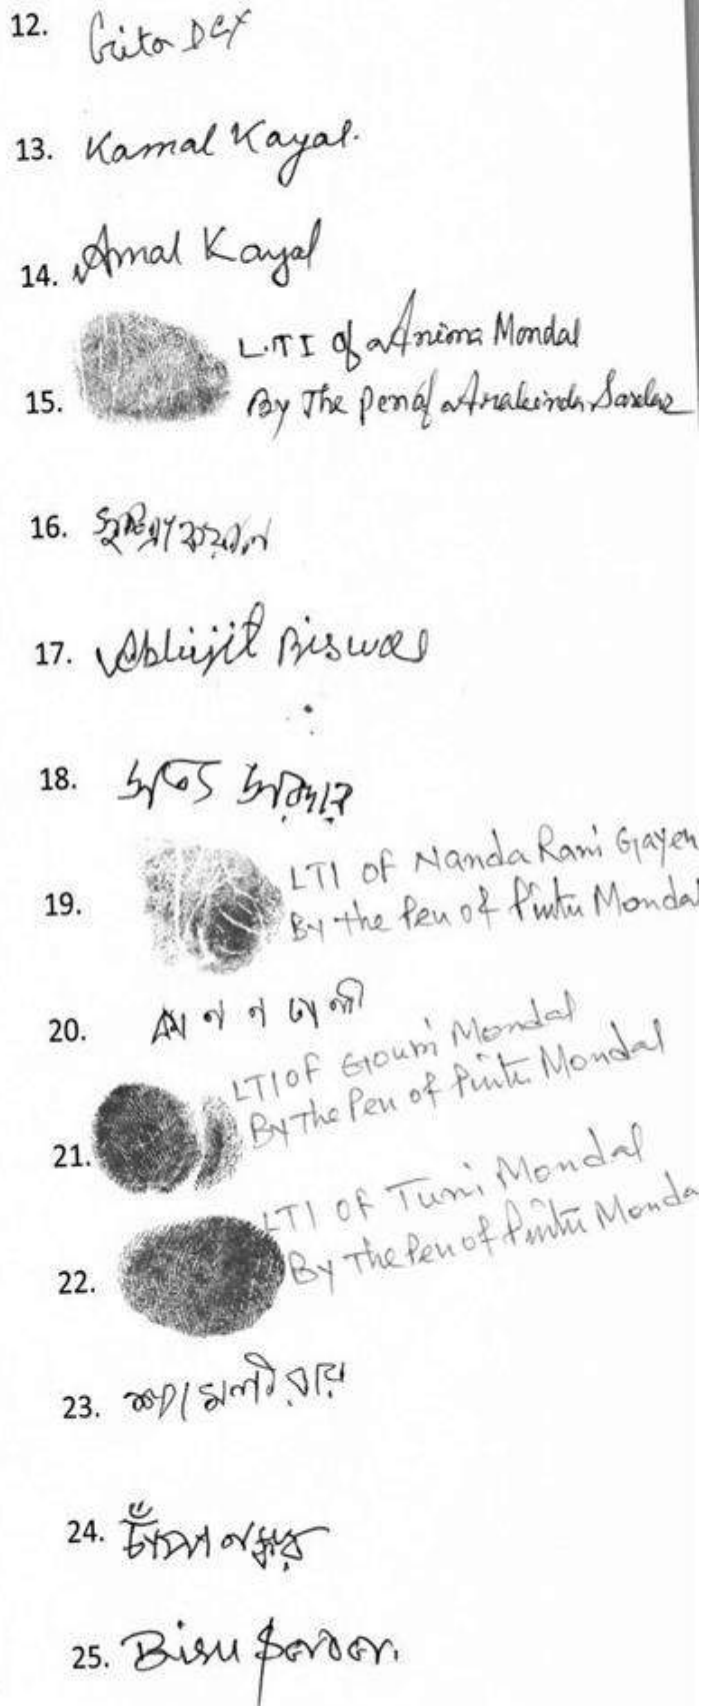 12. Gita Dey
13. Kamal Kayal.
14. Amal Kayal
L.T.I of Anima Mondal
15. By The Pen of Arabinda Sardar
16.
17. Abhijit Biswas
18.
LTI OF Nanda Rani Gayen
19. By the Pen of Pintu Mondal
20.
LTI OF Gouri Mondal
By The Pen of Pintu Mondal
21.
LTI OF Tuni Mondal
By The Pen of Pintu Monda
22.
23. শ্যামলী রায়
24. চাঁপা নস্কর
25. Bisu